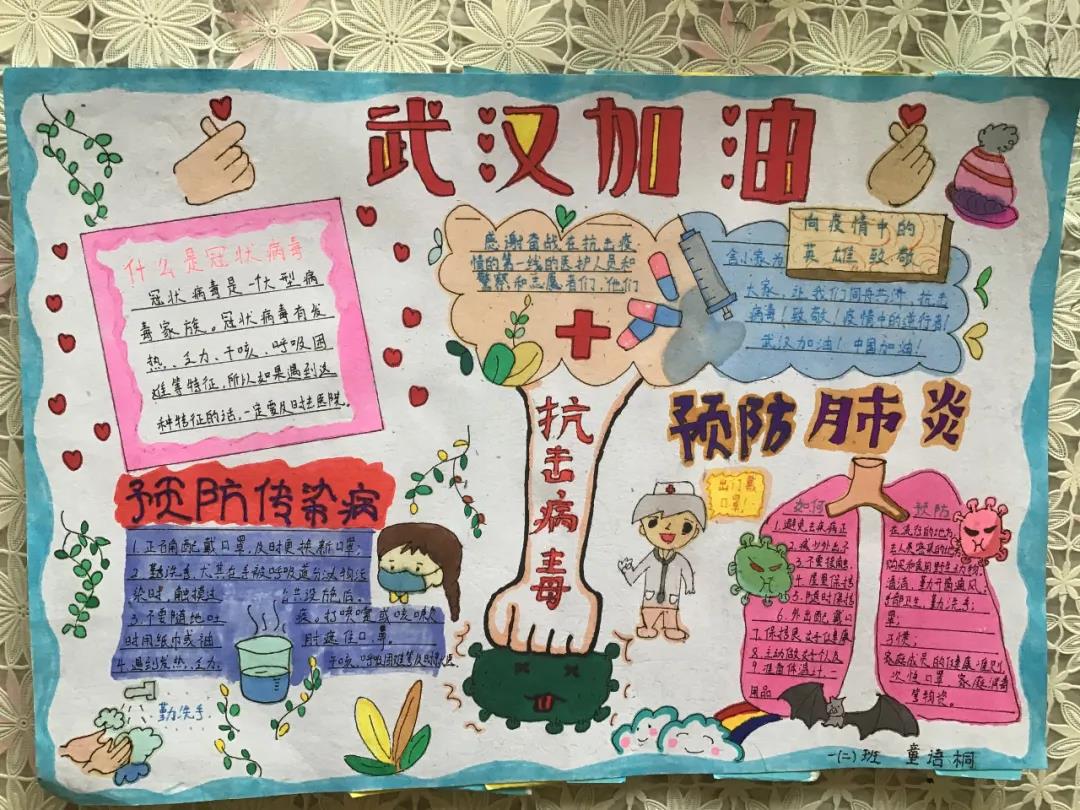 武汉加油
什么是冠状病毒
冠状病毒是一个大型病
毒家族。冠状病毒有发
热、乏力、干咳、呼吸困
难等特征,所以如果遇到这
种特征的话,一定要及时去医院。
感谢奋战在抗击疫
情的第一线的医护人员和
警察和志愿者们,他们
向疫情中的
英雄致敬
舍小家为
大家,让我们同舟共济,抗击
病毒!致敬!疫情中的逆行者!
武汉加油!中国加油!
抗击病毒
预防肺炎
出门戴
口罩!
预防传染病
1.正确配戴口罩,及时更换新口罩;
2.勤洗手,尤其在手被呼吸道分泌物污
染时、触摸过
公共设施后。
3.不要随地吐
痰。打喷嚏或咳嗽
时用纸巾或袖
肘遮住口、鼻。
4.遇到发热、乏力、
干咳、呼吸困难等及时就医
勤洗手
如何
预防
1.避免去疾病正
在流行的地方
2.减少外出不
去人员密集的地方
3.不要接触
购买和食用野生动物;
4.居里保持
清洁,勤开窗通风;
5.随时保持
手部卫生,勤洗手;
6.外出配戴口
罩;
7.保持良好卫生健康
习惯;
8.主动做好个人及
家庭成员的健康
9.准备体温计、一
次性口罩、家庭消毒
用品
等物资。
一(二)班 童语桐